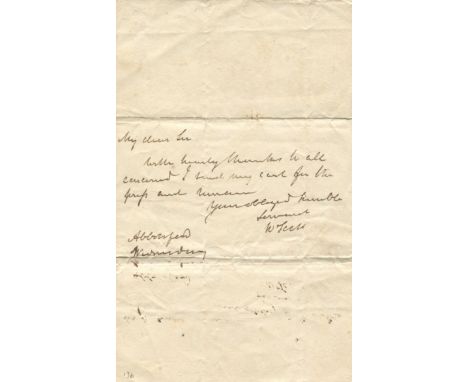 My dear Sir
With hearty thanks to all
concernd I send my card for the
and remain
Your obliged humble
Servant
W Scott
Abbotsford
Wednesday